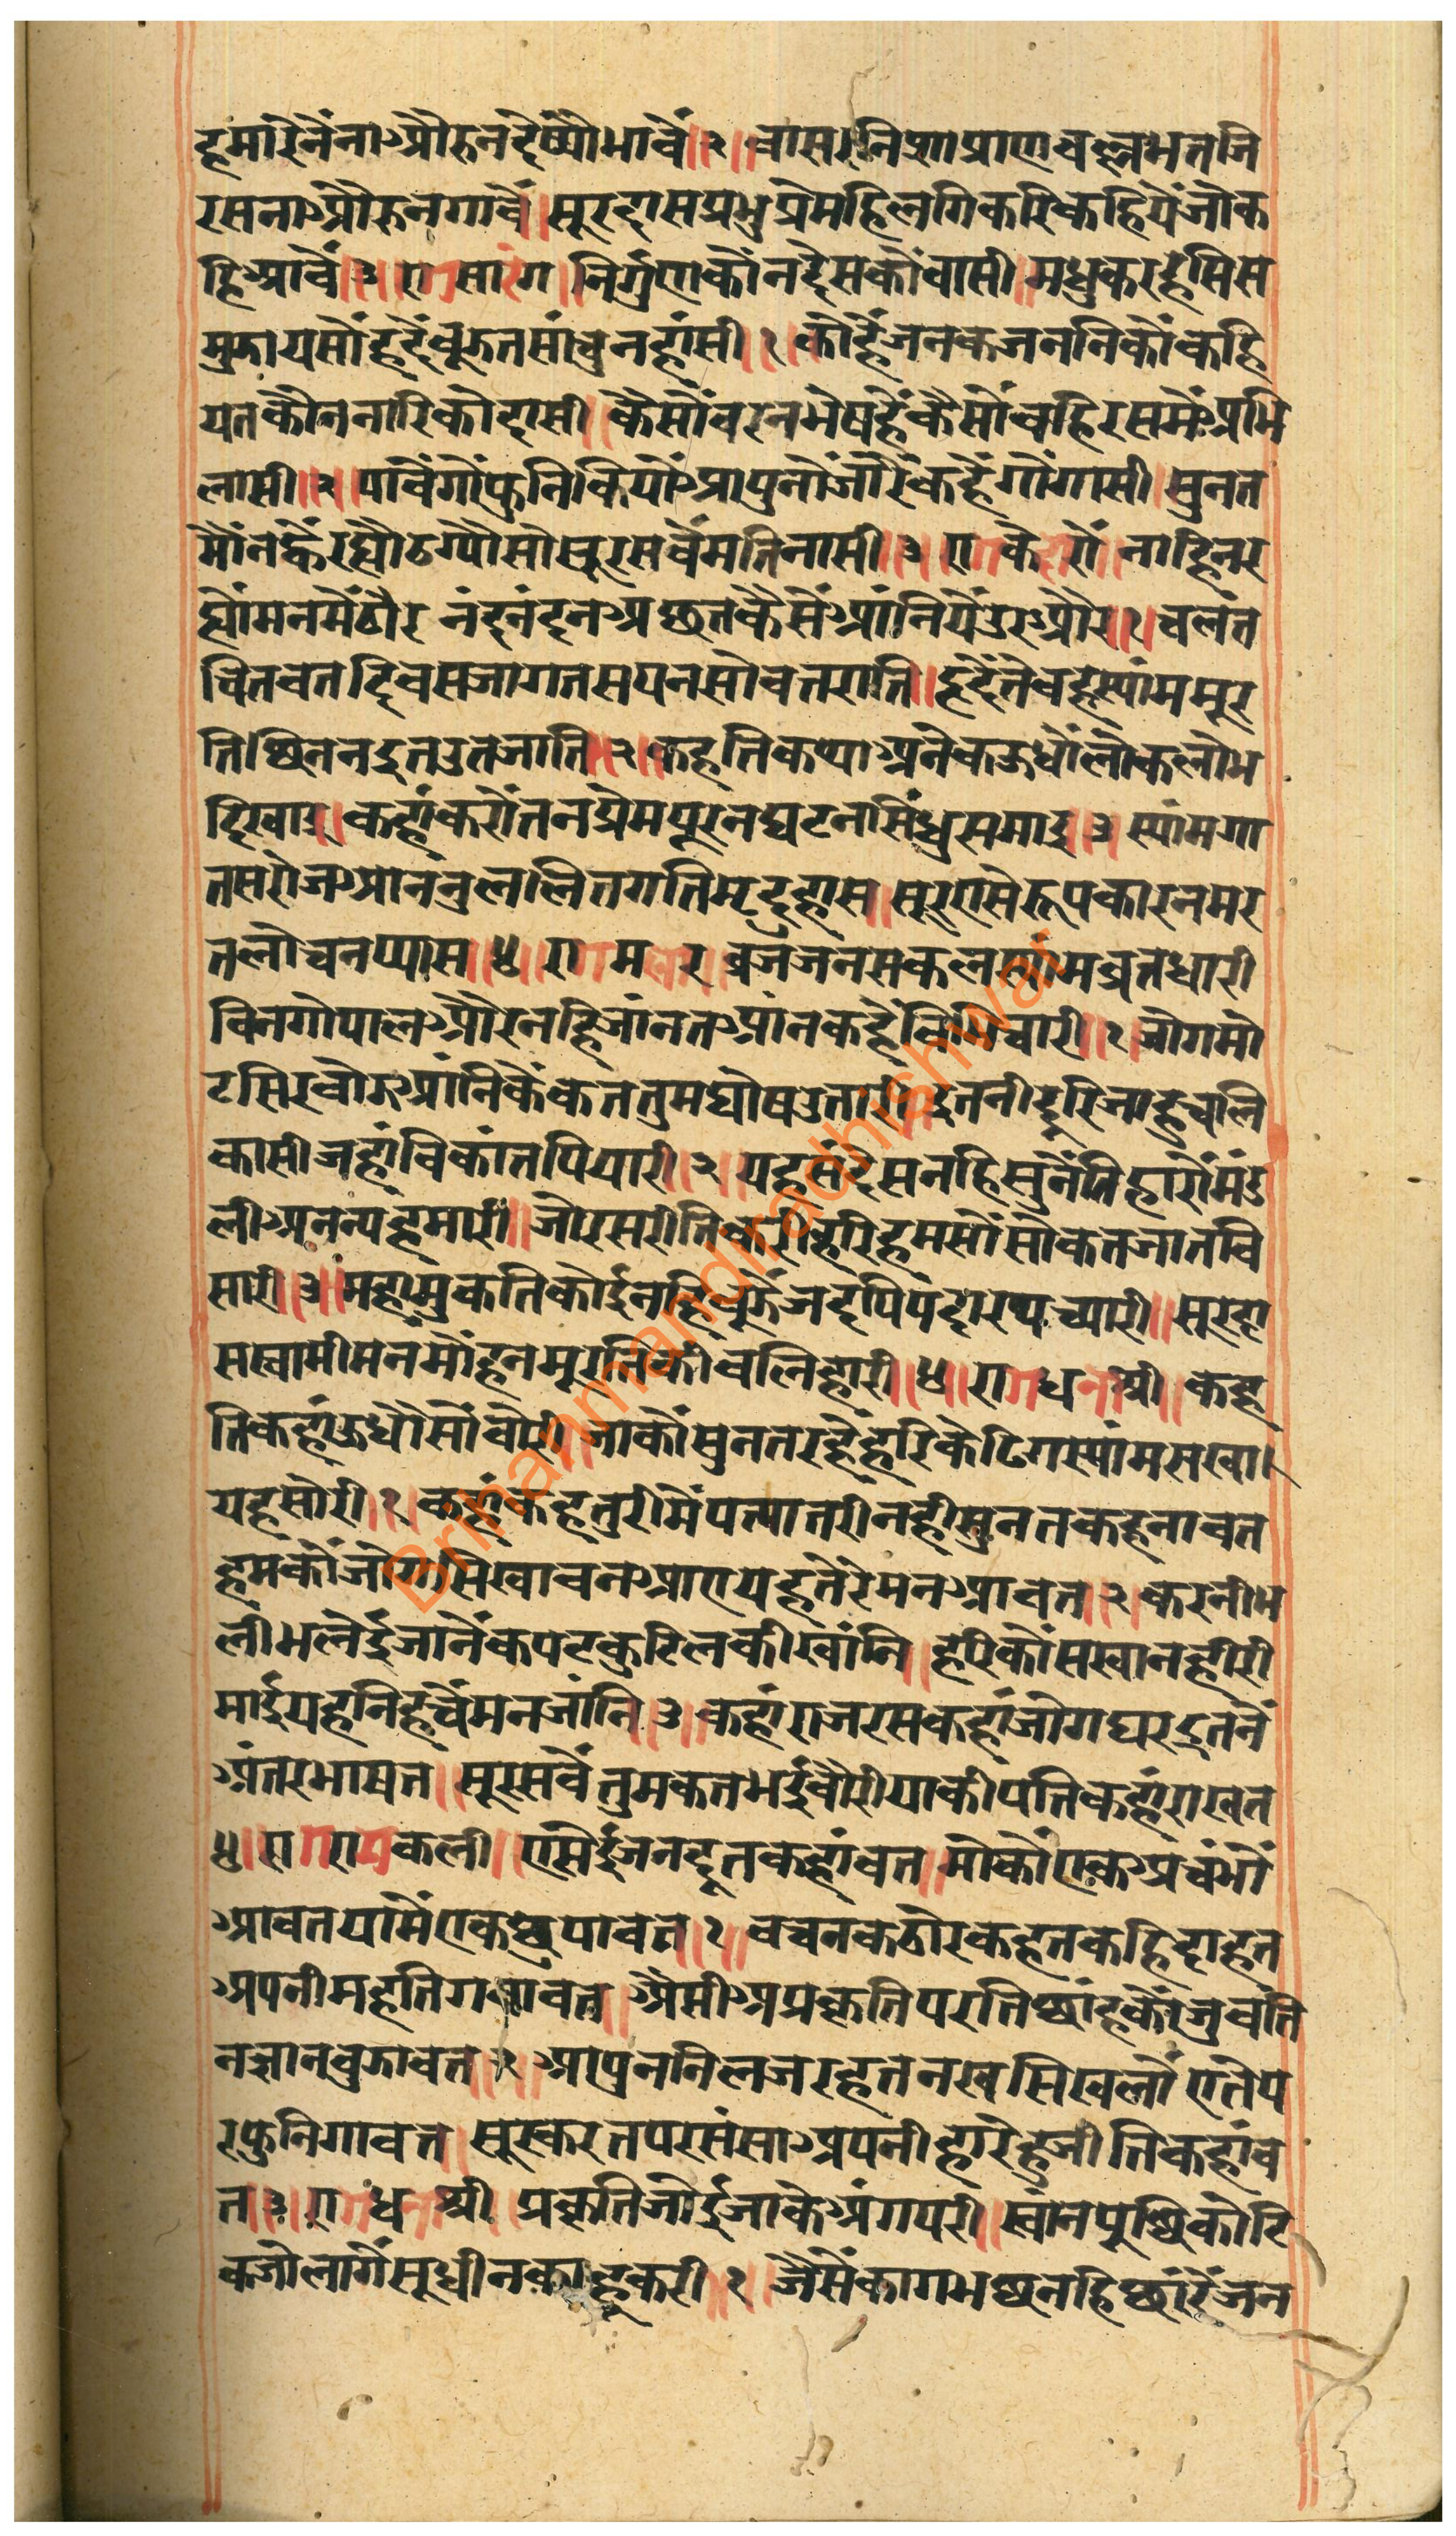 हमारेनैंनाऔरुनदेष्यौभावैं॥२॥वासरनिशाप्राणवल्लभतजि
रसनाऔरुनगावैं॥सूरदासप्रभुप्रेमहिलगिकरिकहियैंजोक
हिआवैं॥३॥रागसारंग॥निर्गुणकौंनदेसकौवासी॥मधुकरहसिस
मुझायसौंहदैंबूझतसांचुनहांसी॥१॥कोहैंजनकजननिकौंकहि
यतकौननारिकोदासी॥कैसौंवरनभेषहैंकैसौंवहिरसमैंअभि
लासी॥२॥पावैंगोफुनिकियौंआपुनोंजौरैंकहैंगौंगासी॥सुनत
मौंनव्हैंरह्यौठग्यौसोसूरसबैंमतिनासी॥३॥रागकेदारौ॥नाहिनर
ह्यौंमनमेंठौर नंदनंदनअछतकैसैंआंनियैंउरऔर॥१॥चलंत
चितवतदिवसजागतसपनसोवतराति॥हृदैंतैवहस्यांममूर
तिछिननइतउतजाति॥२॥कहतिकथाअनेकऊधौंलोकलोभ
दिखाइ॥कहांकरौंतनप्रेमपूरनघटनसिंधुसमाइ॥३॥स्यांमगा
तसरोजआननुललितगतिमृदुहास॥सूरऐसेरूपकारनमर
तलोचनप्यास॥४॥रागमलार॥व्रजजनसकलस्यांमव्रतधारी
विनगोपालऔरनहिजांनतआंनकहैंविभिचारी॥१॥जोगमो
टसिरबोझआंनिकैंकेततुमघोषउतारी॥इतनीदूरिजाहुचलि
कासीजहांबिकांतपियारी॥२॥यहसंदेसनहिसुनैंतिहारौंमंड
लीअनन्यहमारी॥जोरसरीतिकरीहरिहमसौंसोकतजातवि
सारी॥३॥महामुकतिकोईनहिबूझैंजदपिपदारथच्यारी॥सूरदा
सस्वामीमनमोंहनमूरतिकीबलिहारी॥४॥रागधनाश्री॥कह
तिकहांऊधौसौंबौरी॥जाकौंसुनतरहैंहरिकेढिगस्यांमसखा।
यहसोरी॥१॥कहांकहतुरीमैंपत्यातरीनहीसुनतकहनावत
हमकौंजोगसिखावनआएयहतेरेमनआवत॥२॥करनीभ
लीभलेईजानैंकपटकुटिलकीखांनि॥हरिकोंसखानहीरी
माईयहनिहचैंमनजांनि॥३॥कहांराजरसकहांजोगघरइतनैं
अंतरभाषत॥सूरसबैंतुमकतभईबौरीयाकीपतिकहांराखत
४॥रागरामकली॥एसेईजनदूतकहांवत॥मोकौंएकअचंभौं
आवतयामैंएकछुपावत॥१॥वचनकठोरकहतकहिदाहत
अपनीमहतिगवावत॥ऐसीअप्रकृतिपरतिछांहकौंजुवति
नज्ञानबुझावत॥२॥आपुननिलजरहतनखसिखलौंएतेप
रफुनिगावत॥सूरकरतपरसंसाअपनीहारेहुजीतिकहांव
त॥३॥रागधनाश्री॥प्रकृतिजोईजाकेअंगपरी॥स्वांनपुछिकोटि
कजोलागैंसूधीनकाहूकरी॥१॥जैसैंकागभछनहिछांरैंजन